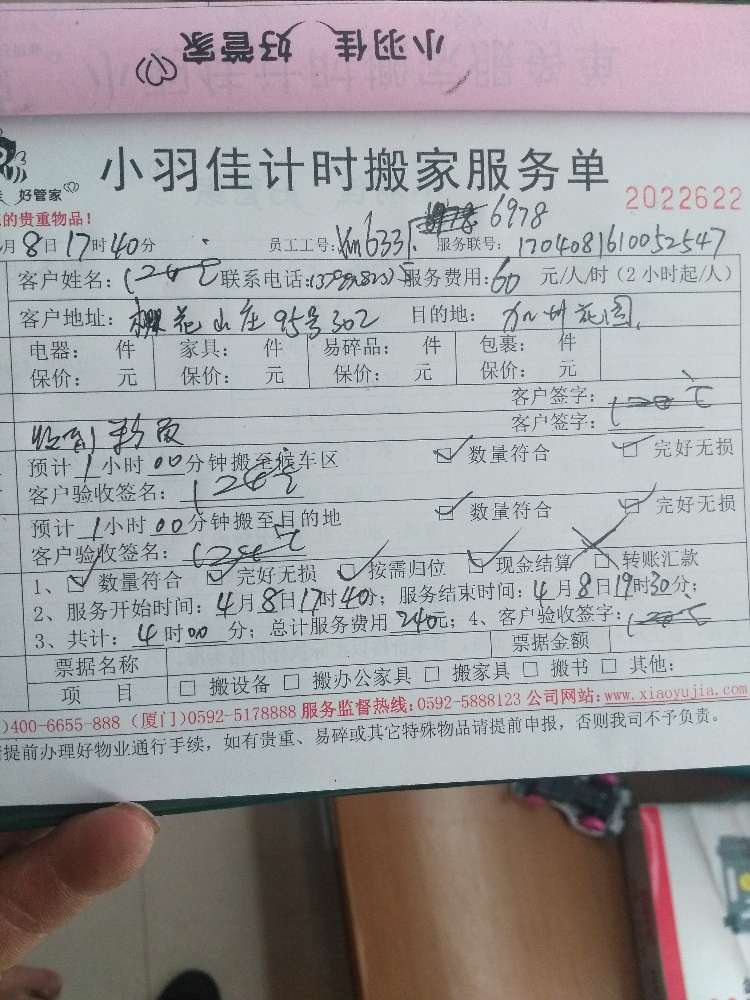 小羽佳 好管家
小羽佳计时搬家服务单
好管家
2022622
的贵重物品!
6978
月8日17时40分 员工工号: 服务联号: 1704081610052547
客户姓名: 联系电话: 服务费用: 60 元/人/时(2小时起/人)
客户地址: 花山庄95号302 目的地: 加州花园
电器: 件 家具: 件 易碎品: 件 包裹: 件
保价: 元 保价: 元 保价: 元 保价: 元
客户签字:
客户签字:
预计1小时00分钟搬至候车区 数量符合 完好无损
客户验收签名:
预计1小时00分钟搬至目的地 数量符合 完好无损
客户验收签名:
1、 数量符合 完好无损 按需归位 现金结算 转账汇款
2、服务开始时间: 4月8日17时40分; 服务结束时间: 4月8日19时30分;
3、共计: 4时00分; 总计服务费用240元; 4、客户验收签字:
票据名称 票据金额
项 目 □ 搬设备 □ 搬办公家具 □ 搬家具 □ 搬书 □ 其他:
)400-6655-888 (厦门)0592-5178888 服务监督热线:0592-5888123 公司网站:www.xiaoyujia.com
提前办理好物业通行手续,如有贵重、易碎或其它特殊物品请提前申报,否则我司不予负责。